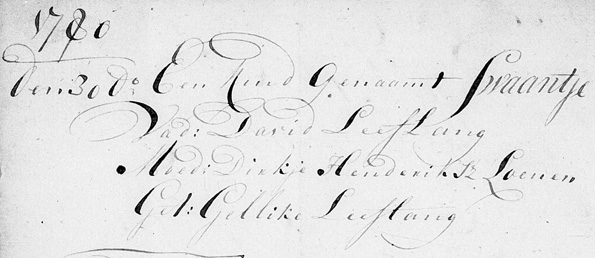 1780
den 30 Do: Een Kind Genaamt Swaantje
Vad: David Leeflang
Moed: Dirkje Hendriks Loenen
Get: Gellike Leeflang